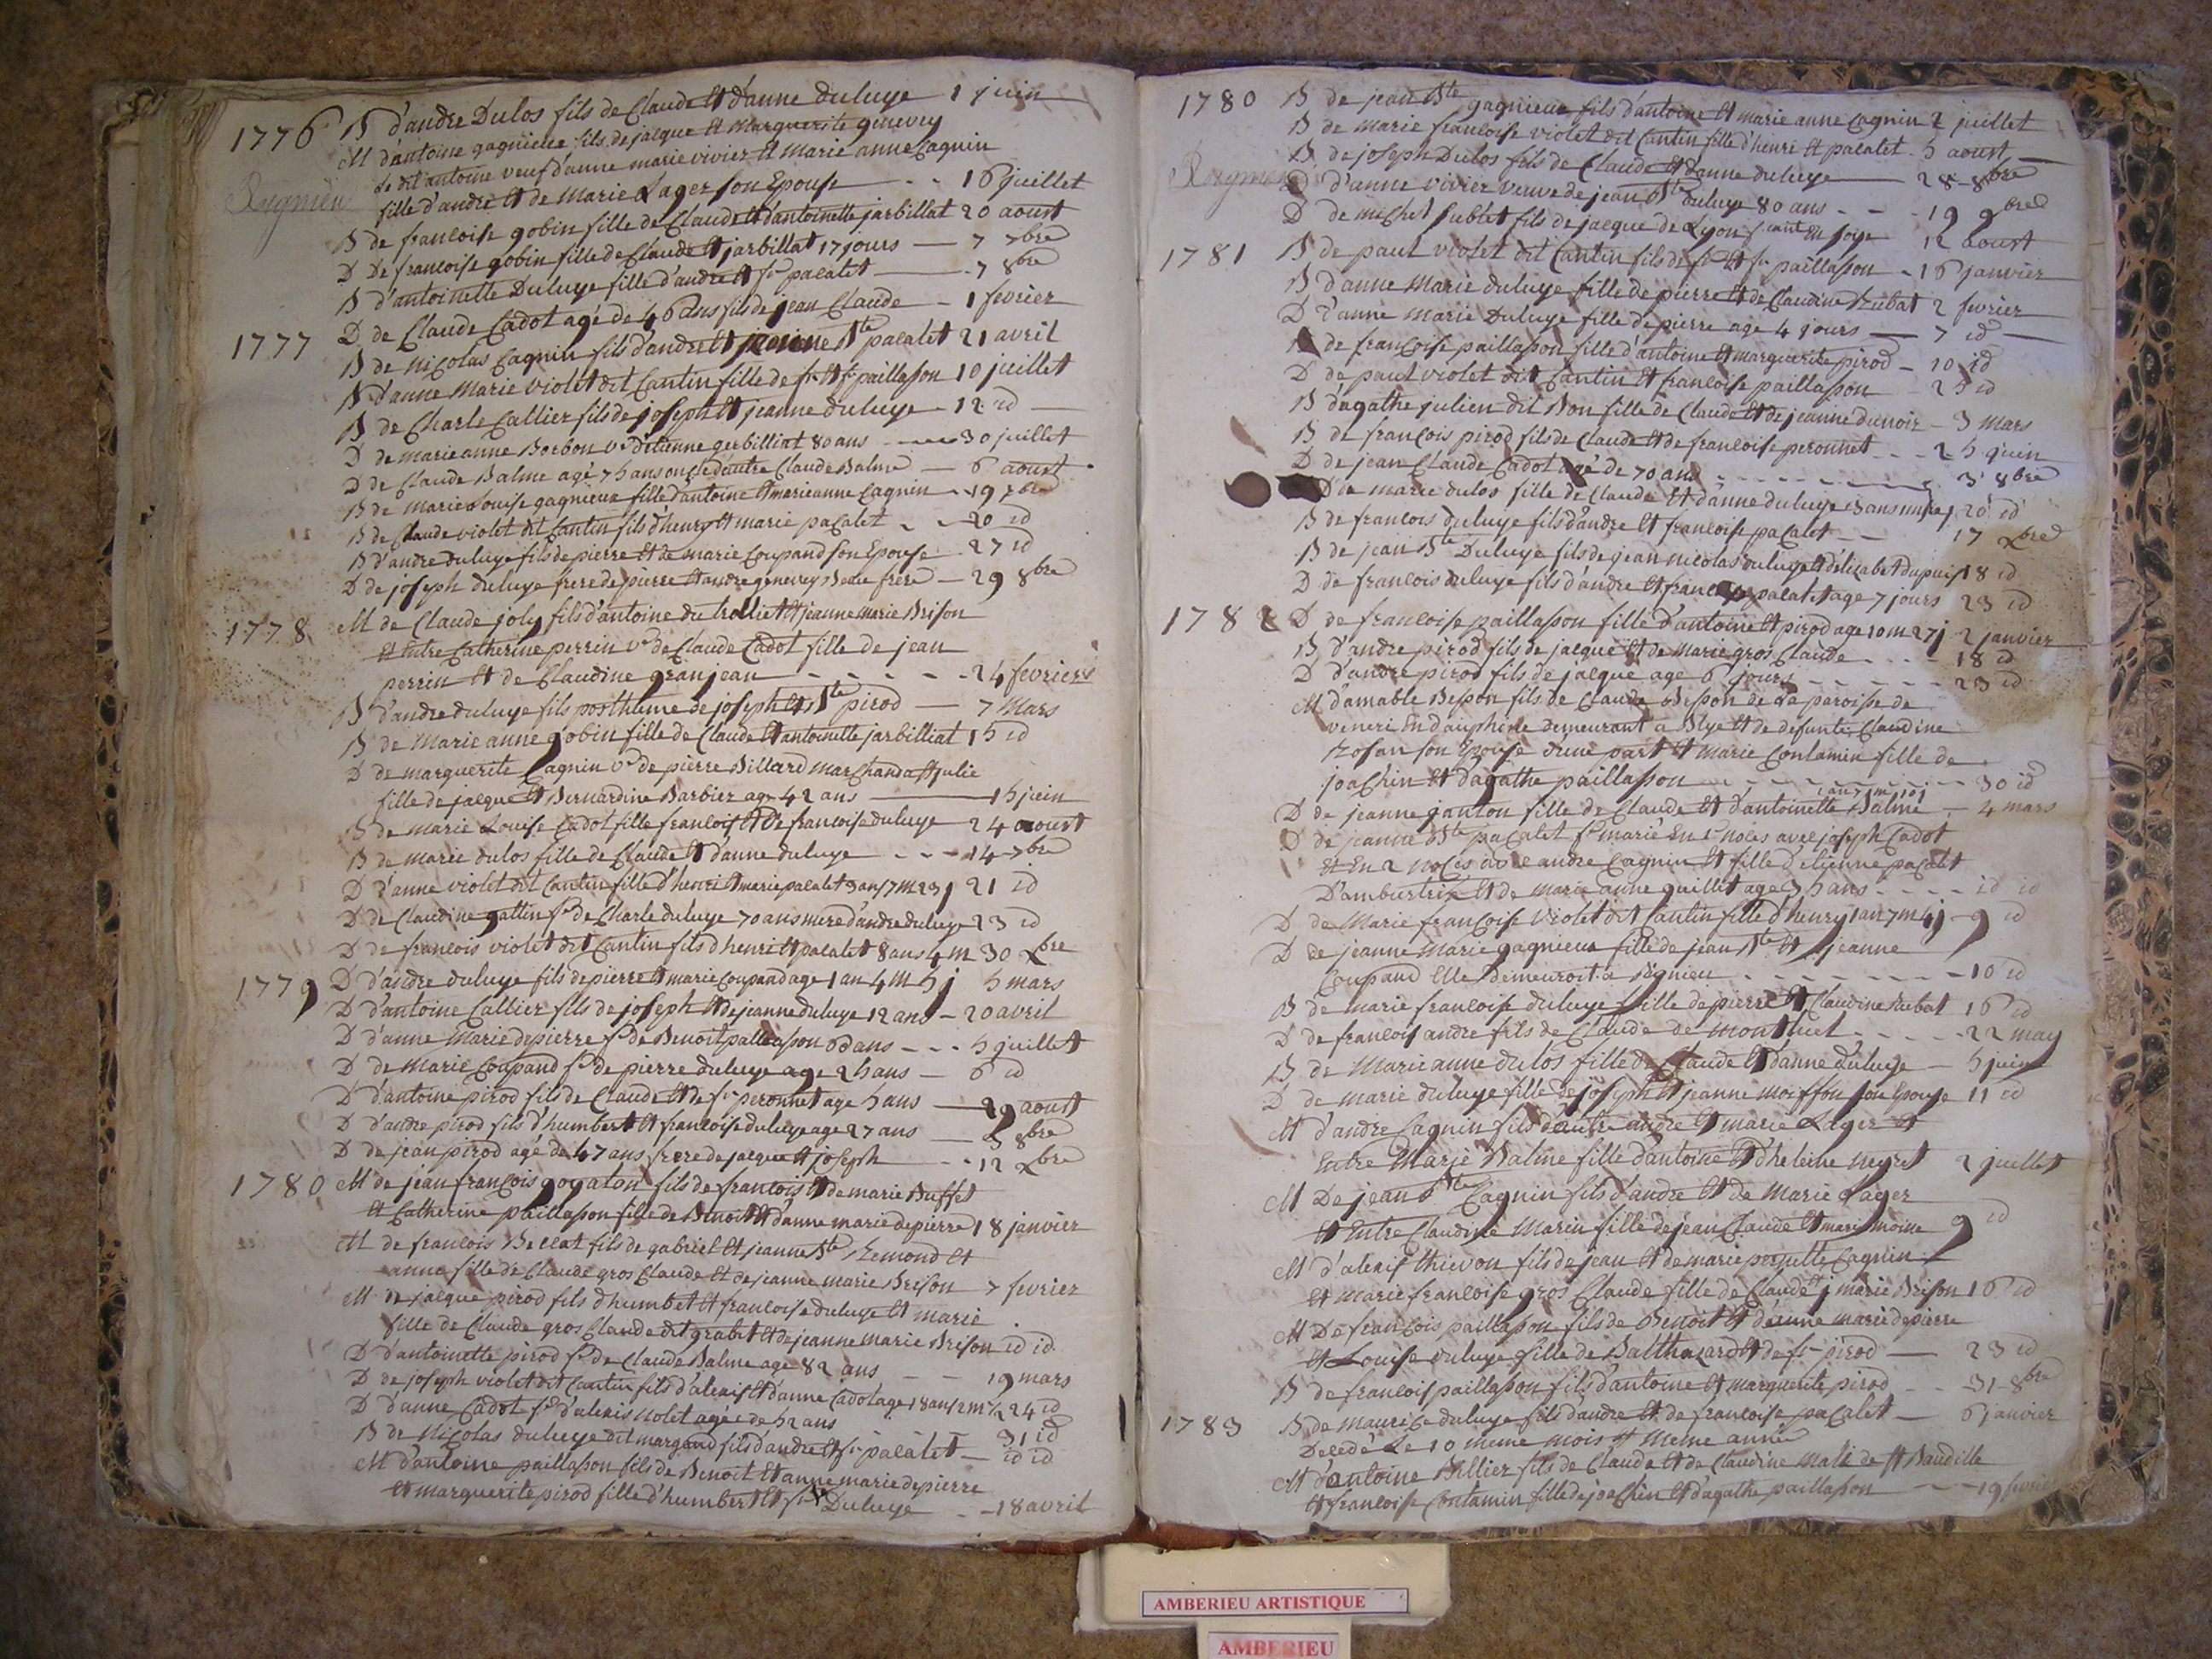 1776 B d'andre Dulos fils de Claude et d'anne duluye 1 juin
M d'antoine gagnieue fils de jacque et Marguerite genevey
le dit antoine veuf d'anne marie vivier et Marie anne Cagnin
fille d'andre et de Marie Lager son Epouse - - 16 juillet
B de francoise gobin fille de Claude et d'antoinette jarbillat 20 aoust
D de francoise gobin fille de Claude et jarbillat 17 jours — 7 7bre
B d'antoinette Duluye fille d'andre et fr palatet — 7 8bre
1777 D de Claude Cadot agé de 46 ans fils de jean Claude — 1 fevrier
B de Nicolas Cagnin fils d'andre et jeanne Bte palatet 21 avril
B d'anne Marie violet dit Cantin fille de fr et fr paillasson 10 juillet
B de Charle Callier fils de joseph et jeanne duluye — 12 id
D de marie anne Borbon ve d'etienne gerbilliat 80 ans — 30 juillet
D de Claude Balme agé 75 ans oncle d'autre Claude Balme — 6 aoust
B de Marie Louise gagnieux fille d'antoine et marie anne Cagnin - 19 7bre
B de Claude violet dit Cantin fils d'henry et marie pacalet - - 20 id
B d'andre duluye fils de pierre et de marie Coupand son Epouse - 27 id
D de joseph duluye frere de pierre et andre genevey Beau frere — 29 8bre
1778 M de Claude joly fils d'antoine du trolliet et jeanne marie Brison
et Entre Catherine perrin ve de Claude Cadot fille de jean
perrin et de Claudine granjean - - - - - 24 fevrier
B d'andre duluye fils posthume de joseph et Bte pirod — 7 Mars
B de Marie anne gobin fille de Claude et antoinette jarbilliat 15 id
D de marguerite Cagnin ve de pierre Billard marchand a St julie
fille de jacque et Bernardine Barbier age 42 ans — 15 juin
B de Marie Louise Cadot fille francois et de francoise duluye 24 aoust
B de marie dulos fille de Claude et d'anne duluye - - - 14 7bre
D d'anne violet dit Cantin fille d'henri et marie palatet 9 ans 7 m 23 j 21 id
D de Claudine gattin fe de Charle duluye 70 ans mere d'andre duluye 23 id
D de francois violet dit Cantin fils d'henri et palatet 8 ans 4 m 30 Xbre
1779 D d'andre duluye fils de pierre et marie Coupand age 1 an 4 m 5 j 5 mars
D d'antoine Callier fils de joseph et de jeanne duluye 12 ans — 20 avril
D d'anne Marie depierre fe de Benoit paillasson 60 ans - - - 5 juillet
D de Marie Coupand fe de pierre duluye age 25 ans — 6 id
D d'antoine pirod fils de Claude et de fr peronnet age 5 ans — 29 aoust
D d'andre pirod fils d'humbert et francoise duluye age 27 ans — 3 8bre
D de jean pirod agé de 47 ans frere de jacque et joseph - - 12 Xbre
1780 M de jean francois gogaton fils de francois et de marie Buffet
et Catherine paillasson fille de Benoit et d'anne marie depierre 18 janvier
M de francois Bellat fils de gabriel et jeanne Bte Remond et
anne fille de Claude gros Claude et de jeanne marie Brison 7 fevrier
M de jacque pirod fils d'humbet et francoise duluye et marie
fille de Claude gros Claude dit grabit et de jeanne marie Brison id id
D d'antoinette pirod fe de Claude Balme age 82 ans — — 19 mars
D de joseph violet dit Cantin fils d'alexis et d'anne Cadot age 18 ans 2 m ½ 24 id
D d'anne Cadot fe d'alexis violet agée de 52 ans 31 id
B de Nicolas duluye dit margand fils d'andre et fr palatet — id id
M d'antoine paillasson fils de Benoit et anne marie depierre
et marguerite pirod fille d'humbert et fr Duluye - - 18 avril
1780 B de jean Bte gagnieux fils d'antoine et marie anne Cagnin 2 juillet
B de Marie francoise violet dit Cantin fille d'henri et palatet - 5 aoust
B de joseph Dulos fils de Claude et d'anne duluye — 28 8bre
D d'anne vivier veuve de jean Bte duluye 80 ans - - - 19 9bre
D de michel sublet fils de jacque de Lyon 12 aoust
1781 B de paul violet dit Cantin fils de fr et fr paillasson - 16 janvier
B d'anne Marie duluye fille de pierre et de Claudine Rubat 2 fevrier
D d'anne marie Duluye fille de pierre age 4 jours — 7 id
B de francoise paillasson fille d'antoine et marguerite pirod — 10 id
D de paul violet dit Cantin et francoise paillasson 25 id
B d'agathe julien dit Bon fille de Claude et de jeanne dunoir — 3 mars
B de francois pirod fils de Claude et de francoise peronnet - - - 25 juin
D de jean Claude Cadot agé de 70 ans - - - - - 3 8bre
D de marie dulos fille de Claude et d'anne duluye 20 id
B de francois duluye fils d'andre et francoise pacalet — 17 Xbre
B de jean Bte Duluye fils de jean nicolas duluye et d'elizabet dupuis 18 id
D de francois duluye fils d'andre et francoise palatet age 7 jours 23 id
1782 D de francoise paillasson fille d'antoine et pirod age 10 m 27 j 2 janvier
B d'andre pirod fils de jacque et de Marie gros Claude - - - 18 id
D d'andre pirod fils de jacque age 6 jours - - - - 23 id
M d'amable Besson fils de Claude Besson de la paroisse de
veneri En dauphiné demeurant a Blye et de defunte Claudine
Rosan son Epouse d'une part et Marie Contamin fille de
joachin et d'agathe paillasson - - - - - 30 id
1 an 7 m 10 j
D de jeanne janton fille de Claude et d'antoinette Balme — 4 mars
D de jeanne Bte pacalet fe marié En 1e noces avec joseph Cadot
et En 2 noces avec andre Cagnin et fille d'etienne pacalet
D'ambutrix et de Marie anne guillet age 35 ans - - - - id id
D de Marie francoise violet dit Cantin fille d'henry 1 an 7 m 4 j - 9 id
D de jeanne Marie gagnieux fille de jean Bte et jeanne
Coupand Elle demeuroit a rignieu - - - - - 10 id
B de marie francoise duluye fille de pierre et Claudine Rubat 16 id
D de francois andre fils de Claude de Montluel - - - - 22 may
B de Marie anne dulos fille de Claude et d'anne duluye — 5 juin
D de marie duluye fille de joseph et jeanne moiffon son Epouse 11 id
M d'andre Cagnin fils d'autre andre et marie Lager et
Entre Marie Balme fille d'antoine et d'heleine neyret 2 juillet
M de jean Bte Cagnin fils d'andre et de Marie Lager
et Entre Claudine Marin fille de jean Claude et marie moine 9 id
M d'alexis thievon fils de jean et de marie perrette Cagnin
et Marie francoise gros Claude fille de Claude et j marie Brison 16 id
M de francois paillasson fils de Benoit et d'anne marie depierre
et Louise duluye fille de Balthazard et de fr pirod — 23 id
B de francois paillasson fils d'antoine et marguerite pirod - - 31 8bre
1783 B de Maurice duluye fils d'andre et de francoise pacalet — 6 janvier
Decedé Le 10 meme mois et meme année
M d'antoine Billier fils de Claude et de Claudine Male de St Baudille
et francoise Contamin fille de joachin et d'agathe paillasson - - 19 fevrier
AMBERIEU ARTISTIQUE
AMBERIEU